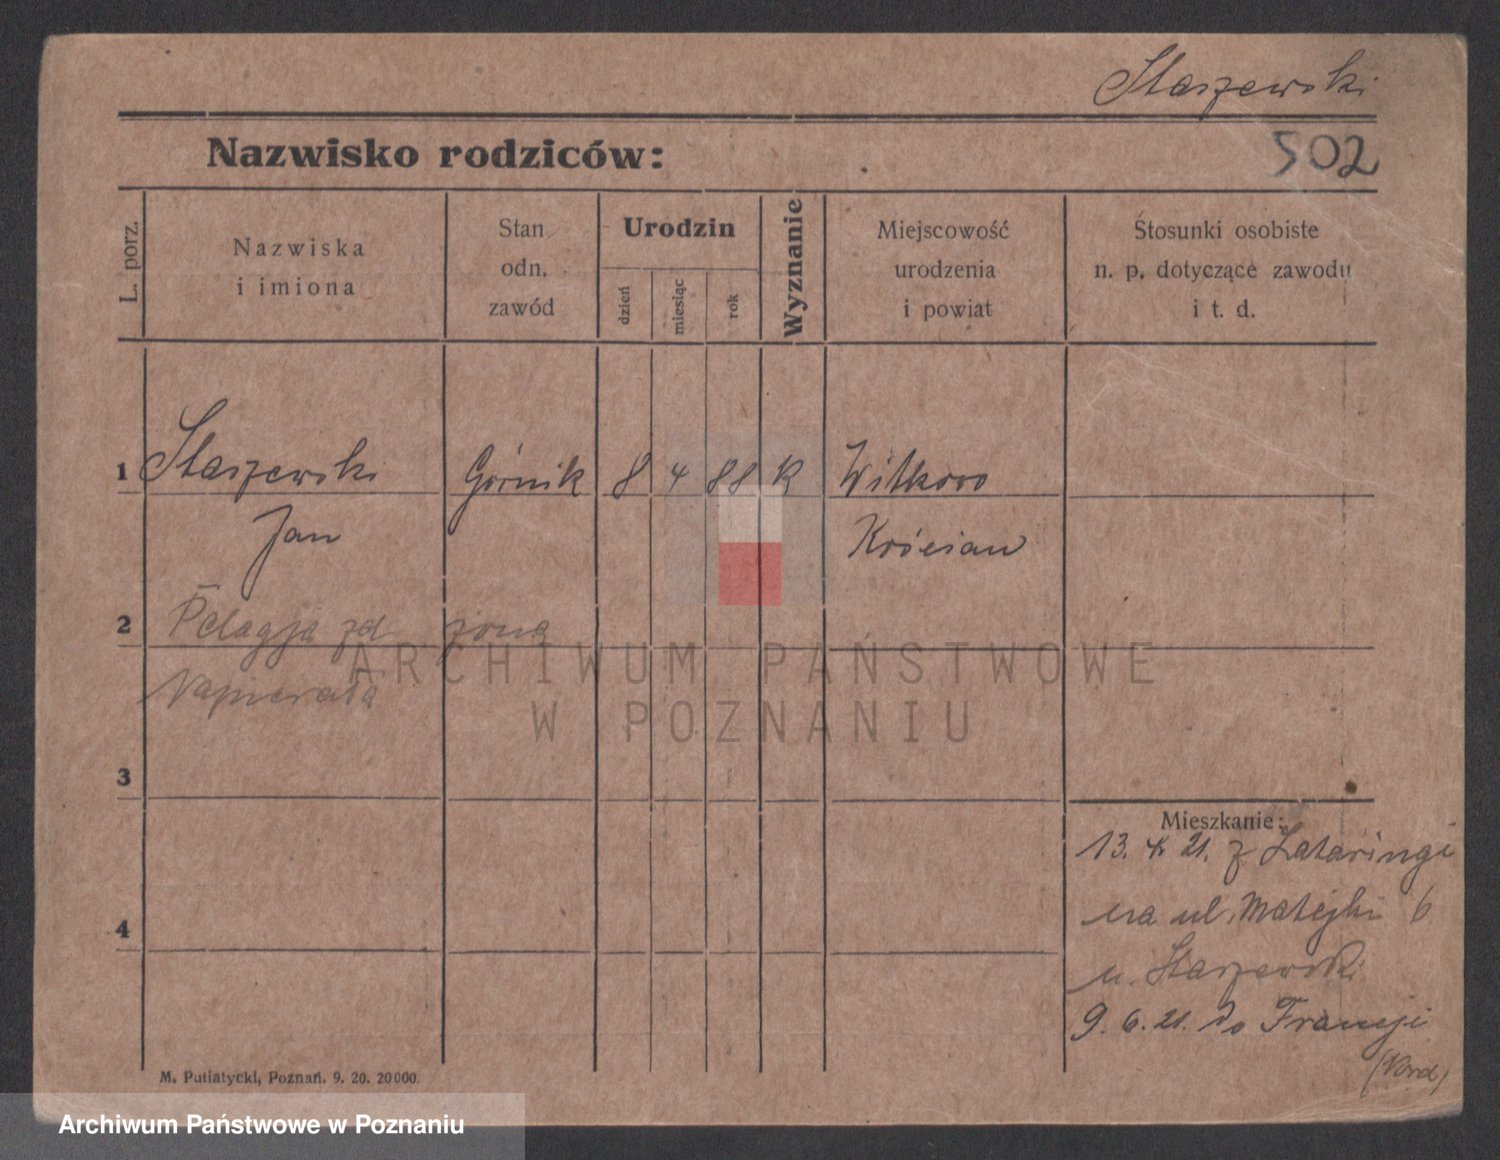 Staszewski
Nazwisko rodziców:
502
L. porz.
Nazwiska
i imiona
Stan
odn.
zawód
Urodzin
dzień
miesiąc
rok
Wyznanie
Miejscowość
urodzenia
i powiat
Stosunki osobiste
n. p. dotyczące zawodu
i t. d.
1 Staszewski Górnik 8 4 88 K Witkowo
Jan Kościan
2 Pelagja zd żona
Napierała
ARCHIWUM PAŃSTWOWE
W POZNANIU
3
Mieszkanie:
13. 4. 21. z Lataringi
4
na ul. Matejki 6
u. Staszewski
9. 6. 21. do Francji
(Nord)
M. Putiatycki, Poznań. 9. 20. 20000.
Archiwum Państwowe w Poznaniu